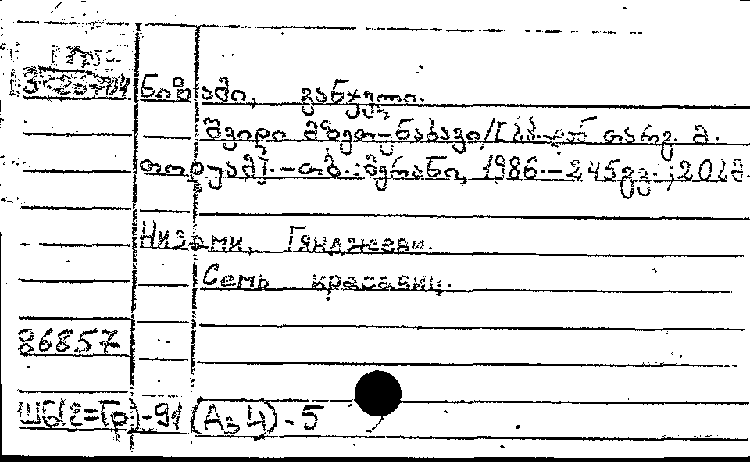 ნიზამი, განჯელი.
შვიდი მზეთუნახავი/[სპ.-დან თარგ. მ.
თოდუამ].-თბ.:მერანი, 1986.-245გვ.;20სმ.
Низами, Гянджеви.
Семь красавиц.
86857
ШБ(2=Гр)-91 (Аз 4) - 5